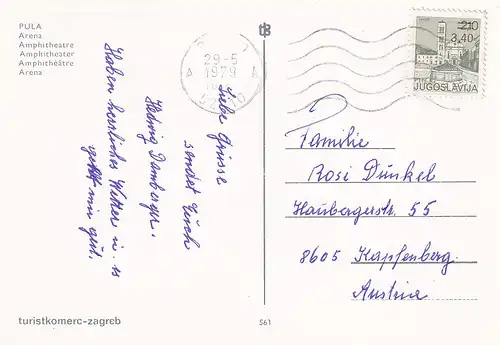 PULA
Arena
Amphitheatre
Amphitheater
Amphithéâtre
Arena
Liebe Grüsse
sendet Euch
Hedwig Damberger.
Haben herrliches Wetter u. es
geht mir gut.
29-5
1979
2,10
3,40
JUGOSLAVIJA
Familie
Rosi Dunkel
Haubergerstr. 55
8605 Kapfenberg
Austria
turistkomerc-zagreb
561